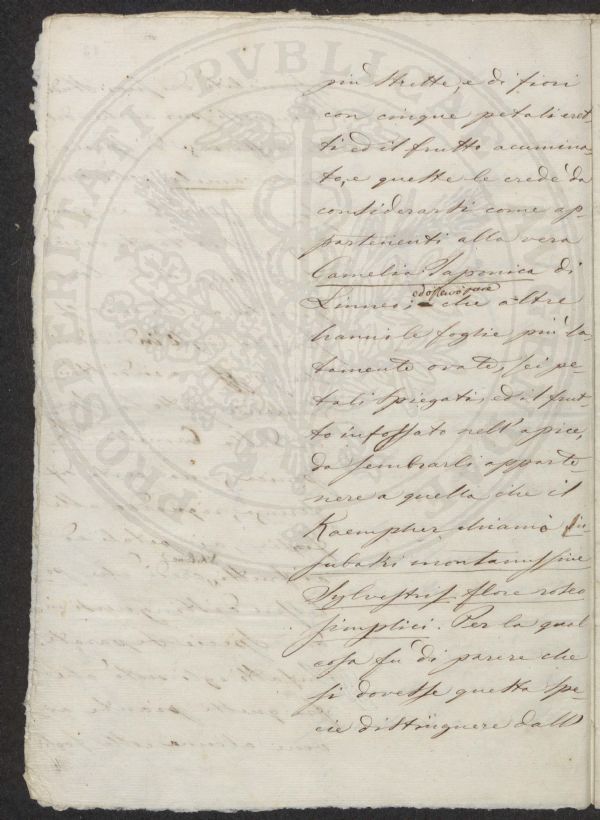 più strette, e di fiori
con cinque petali eret-
ti ed il frutto acumina-
to, e queste le credé da
considerarsi come ap-
partenenti alla vera
Camelia Japonica di
Linneo; ed osservò pure che altre
hanno le foglie più la-
tamente ovate, sei pe-
tali spiegati, ed il frut-
to infossato nell'apice,
da sembrarli apparte-
nere a quella che il
Kaempher chiamò
subaki montanus sive
Sylvestris flore roseo
simplici. Per la qual
cosa fu di parere che
si dovesse questa spe-
cie distinguere dall'
PROSPERITATI PUBLICAE